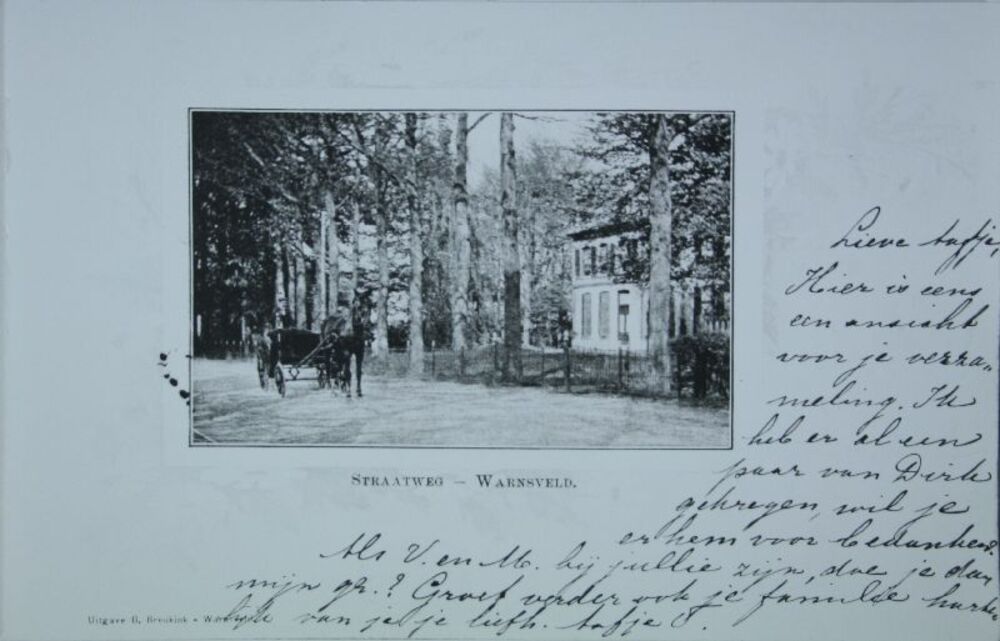 STRAATWEG — WARNSVELD.
Lieve tofje,
Hier is eens
een ansicht
voor je verza-
meling. Ik
heb er al een
paar van Dirk
gekregen, wil je
er hem voor bedanken?
Als V. en M. bij jullie zijn, doe je dan
mijn gr.? Groet verder ook je familie harte-
lijk van je je liefh. tofje
Uitgave B. Breukink -